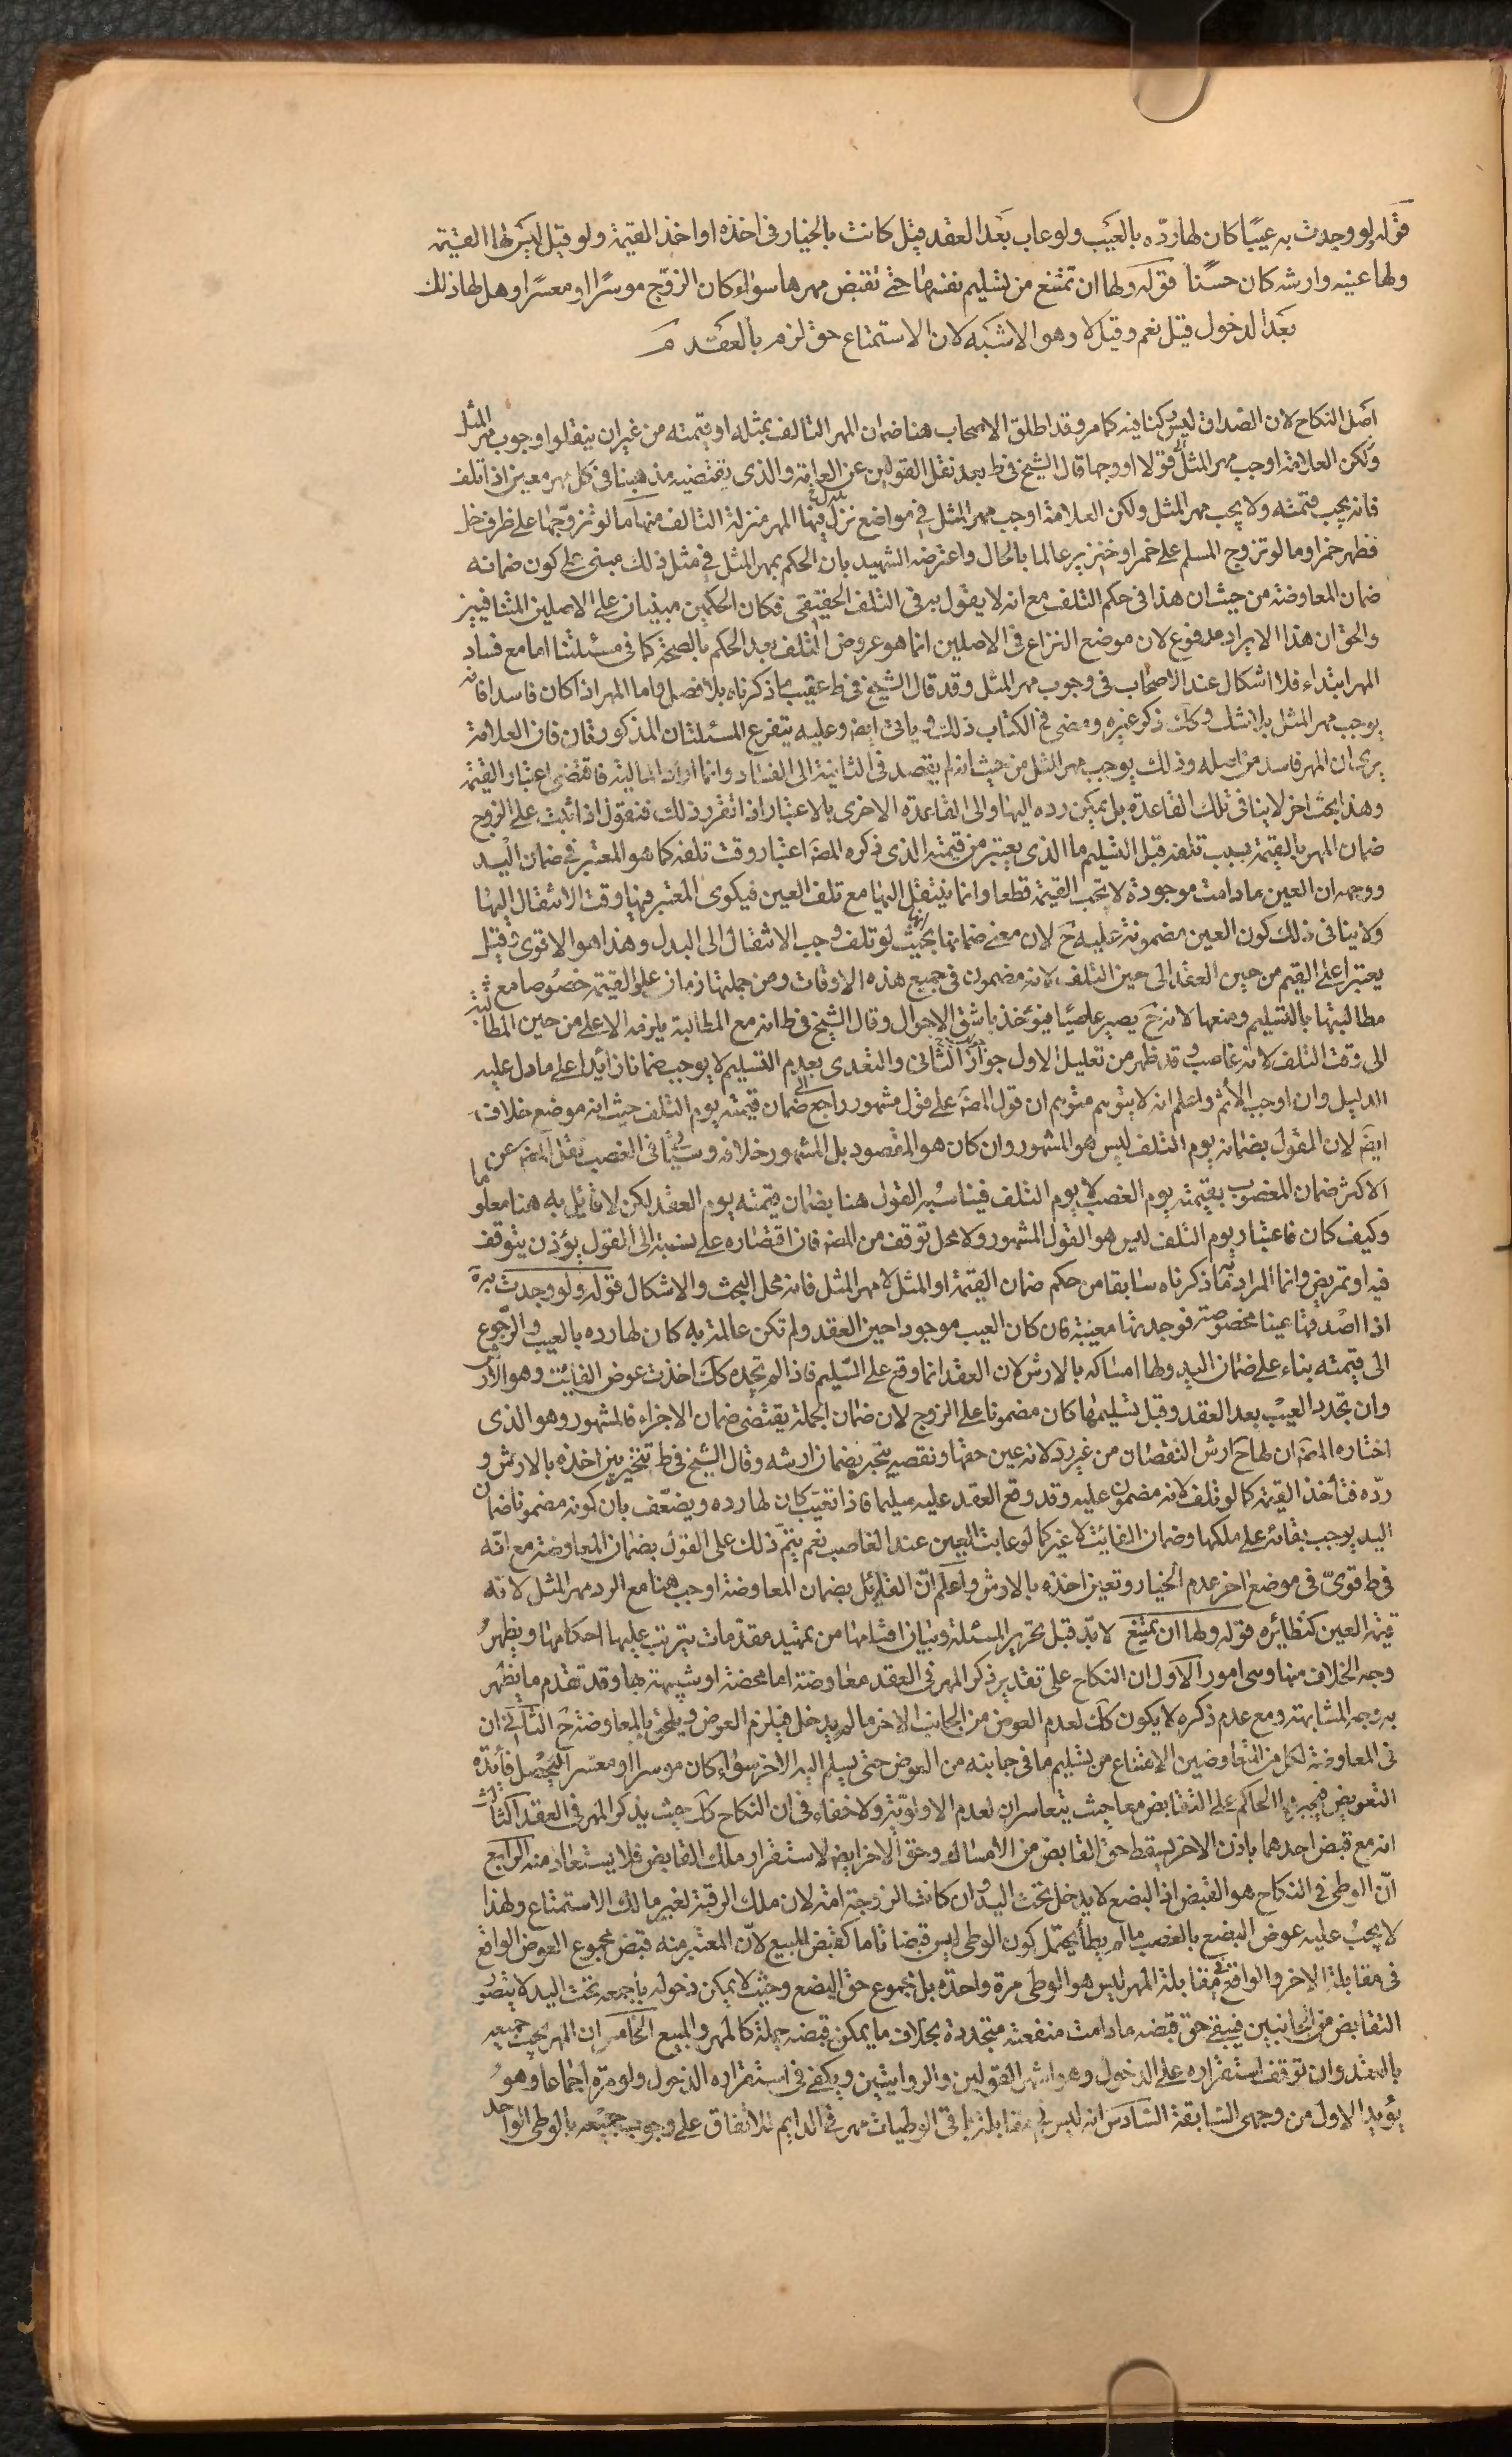 قوله لو وجدت به عيبا كان لها رده بالعيب ولو عاب بعد العقد قيل كانت بالخيار فى اخذه او اخذ القيمة ولو قيل ليس لها القيمة
ولها عينه وارشه كان حسنا قوله ولها ان تمتنع من تسليم نفسها حتى تقبض مهرها سواء كان الزوج موسرا او معسرا وهل لها ذلك
بعد الدخول قيل نعم وقيل لا وهو الاشبه لان الاستمتاع حق لزم بالعقد
اصل النكاح لان الصداق ليس ركنا فيه كما مر وقد اطلق الاصحاب هنا ضمان المهر التالف بمثله او قيمته من غير ان ينقلوا وجوب مهر المثل
ولكن العلامة اوجب مهر المثل قولا او وجها قال الشيخ فى ط بعد نقل القولين عن العامة والذى يقتضيه مذهبنا فى كل مهر معين اذا تلف
فانه يجب قيمته ولا يجب مهر المثل ولكن العلامة اوجب مهر المثل فى مواضع نزل فيها المهر منزلة التالف منها ما لو تزوجها على ظرف خل
فظهر خمرا وما لو تزوج المسلم على خمر او خنزير عالما بالحال واعترضه الشهيد بان الحكم بمهر المثل فى مثل ذلك مبنى على كون ضمانه
ضمان المعاوضة من حيث ان هذا فى حكم التلف مع انه لا يقول به فى التلف الحقيقى فكان الحكمين مبنيان على الاصلين المتنافيين
والحق ان هذا الايراد مدفوع لان موضع النزاع فى الاصلين انما هو عروض التلف بعد الحكم بالصحة كما فى مسئلتنا اما مع فساد
المهر ابتداء فلا اشكال عند الاصحاب فى وجوب مهر المثل وقد قال الشيخ فى ط عقيب ما ذكرناه بلا فصل واما المهر اذا كان فاسدا فانه
يوجب مهر المثل بلا شك وكك ذكر غيره ومضى فى الكتاب ذلك ويأتى ايضه وعليه يتفرع المسئلتان المذكورتان فان العلامة
يرى ان المهر فاسد من اصله وذلك يوجب مهر المثل من حيث انه لم يقصد فى الثانية الى الفساد وانما اراد المالية فاقتضى اعتبار القيمة
وهذا بحث اخر لا ينافى تلك القاعدة بل يمكن رده اليها والى القاعدة الاخرى بالاعتبار اذا تقرر ذلك فنقول اذا ثبت على الزوج
ضمان المهر بالقيمة بسبب تلفه قبل التسليم ما الذى يعتبر من قيمته الذى ذكره المصه اعتبار وقت تلفه كما هو المعتبر فى ضمان اليد
ووجهه ان العين ما دامت موجودة لا تجب القيمة قطعا وانما ينتقل اليها مع تلف العين فيكون المعتبر فيها وقت الانتقال اليها
ولا ينافى ذلك كون العين مضمونة عليه ح لان معنى ضمانها انها بحيث لو تلف وجب الانتقال الى البدل وهذا هو الاقوى وقيل
يعتبر اعلى القيم من حين العقد الى حين التلف لانه مضمون فى جميع هذه الاوقات ومن جملتها زمان علو القيمة خصوصا مع
مطالبتها بالتسليم ومنعها لانه ح يصير غاصبا فيؤخذ باشق الاحوال وقال الشيخ فى ط انه مع المطالبة يلزمه الاعلى من حين المطالبة
الى وقت التلف لانه غاصب وقد ظهر من تعليل الاول جواز الثانى والتعدى بعدم التسليم لا يوجب ضمانا زائدا على ما دل عليه
الدليل وان اوجب الاثم واعلم انه لا يتوهم متوهم ان قول المصه على قول مشهور راجع الى ضمان قيمته يوم التلف حيث انه موضع خلاف
ايضه لان القول بضمانه يوم التلف ليس هو المشهور وان كان هو المقصود بل المشهور خلافه وسيأتى فى الغصب نقل المصه عن
الاكثر ضمان المغصوب بقيمته يوم الغصب لا يوم التلف فيناسبه القول هنا بضمان قيمته يوم العقد لكن لا قائل به هنا معلوما
وكيف كان فاعتبار يوم التلف ليس هو القول المشهور ولا محل توقف من المصه فان اقتصاره على نسبة الى القول يؤذن بتوقف
فيه او تمريض وانما المراد به ما ذكرناه سابقا من حكم ضمان القيمة او المثل لا مهر المثل فانه محل البحث والاشكال قوله ولو وجدت به
اذا اصدقها عينا مخصوصة فوجدتها معيبة فان كان العيب موجودا حين العقد ولم تكن عالمة به كان لها رده بالعيب والرجوع
الى قيمته بناء على ضمان اليد ولها امساكه بالارش لان العقد انما وقع على السليم فاذا لم تجده كك اخذت عوض الفايت وهو الارش
وان تجدد العيب بعد العقد وقبل تسليمها كان مضمونا على الزوج لان ضمان الجملة يقتضى ضمان الاجزاء فالمشهور وهو الذى
اختاره المصه ان لها ح ارش النقصان من غير رد لانه عين حقها ونقصه ينجبر بضمان ارشه وقال الشيخ فى ط تتخير بين اخذه بالارش و
رده فتأخذ القيمة كما لو تلف لانه مضمون عليه وقد وقع العقد عليه سليما فاذا تعيب كان لها رده ويضعف بان كونه مضمونا ضمان
اليد يوجب بقائه على ملكها وضمان الفائت لا غير كما لو عابت العين عند الغاصب نعم يتم ذلك على القول بضمان المعاوضة مع انه
فى ط قوى فى موضع اخر عدم الخيار وتعين اخذه بالارش واعلم ان القائل بضمان المعاوضة اوجب هنا مع الرد مهر المثل لانه
قيمة العين كنظائره قوله ولها ان تمتنع لا بد قبل تحرير المسئلة وبيان اقسامها من تمهيد مقدمات يترتب عليها احكامها ويظهر
وجه الخلاف منها وهى امور الاول ان النكاح على تقدير ذكر المهر فى العقد معاوضة اما محضة او شبيهة بها وقد تقدم ما يظهر
به وجه المشابهة ومع عدم ذكره لا يكون كك لعدم العوض من الجانب الاخر ما لم يدخل فيلزم العوض ويلحق بالمعاوضة ح الثانى ان
فى المعاوضة لكل من المتعاوضين الامتناع من تسليم ما فى جانبه من العوض حتى يسلم اليه الاخر سواء كان موسرا او معسرا لتحصل فائدة
التعويض فيجبرهما الحاكم على التقابض معا حيث يتعاسران لعدم الاولوية ولا خفاء فى ان النكاح كك حيث يذكر المهر فى العقد الثالث
انه مع قبض احدهما باذن الاخر يسقط حق القابض من الامساك وحق الاخر ايضه لاستقرار ملك القابض فلا يستعاد منه الرابع
ان الوطى فى النكاح هو القبض اذ البضع لا يدخل تحت اليد وان كانت الزوجة امة لان ملك الرقبة لغير مالك الاستمتاع ولهذا
لا يجب عليه عوض البضع بالغصب ما لم يطأ ويحتمل كون الوطى ليس قبضا تاما كقبض المبيع لان المعتبر منه قبض مجموع العوض الواقع
فى مقابلة الاخر والواقع فى مقابلة المهر ليس هو الوطى مرة واحدة بل مجموع حق البضع وحيث لا يمكن دخوله بأجمعه تحت اليد لا يتصور
التقابض من الجانبين فيبقى حق قبضه ما دامت منفعته متجددة بخلاف ما يمكن قبضه جملة كالمهر والمبيع الخامس ان المهر يجب جميعه
بالعقد وان توقف استقراره على الدخول وهو اشهر القولين والروايتين ويكفى فى استقراره الدخول ولو مرة اجماعا وهو
يؤيد الاول من وجهى السابقة السادس انه ليس فى مقابلة باقى الوطيات مهر فى الدايم للاتفاق على وجوب جميعه بالوطى الواحد